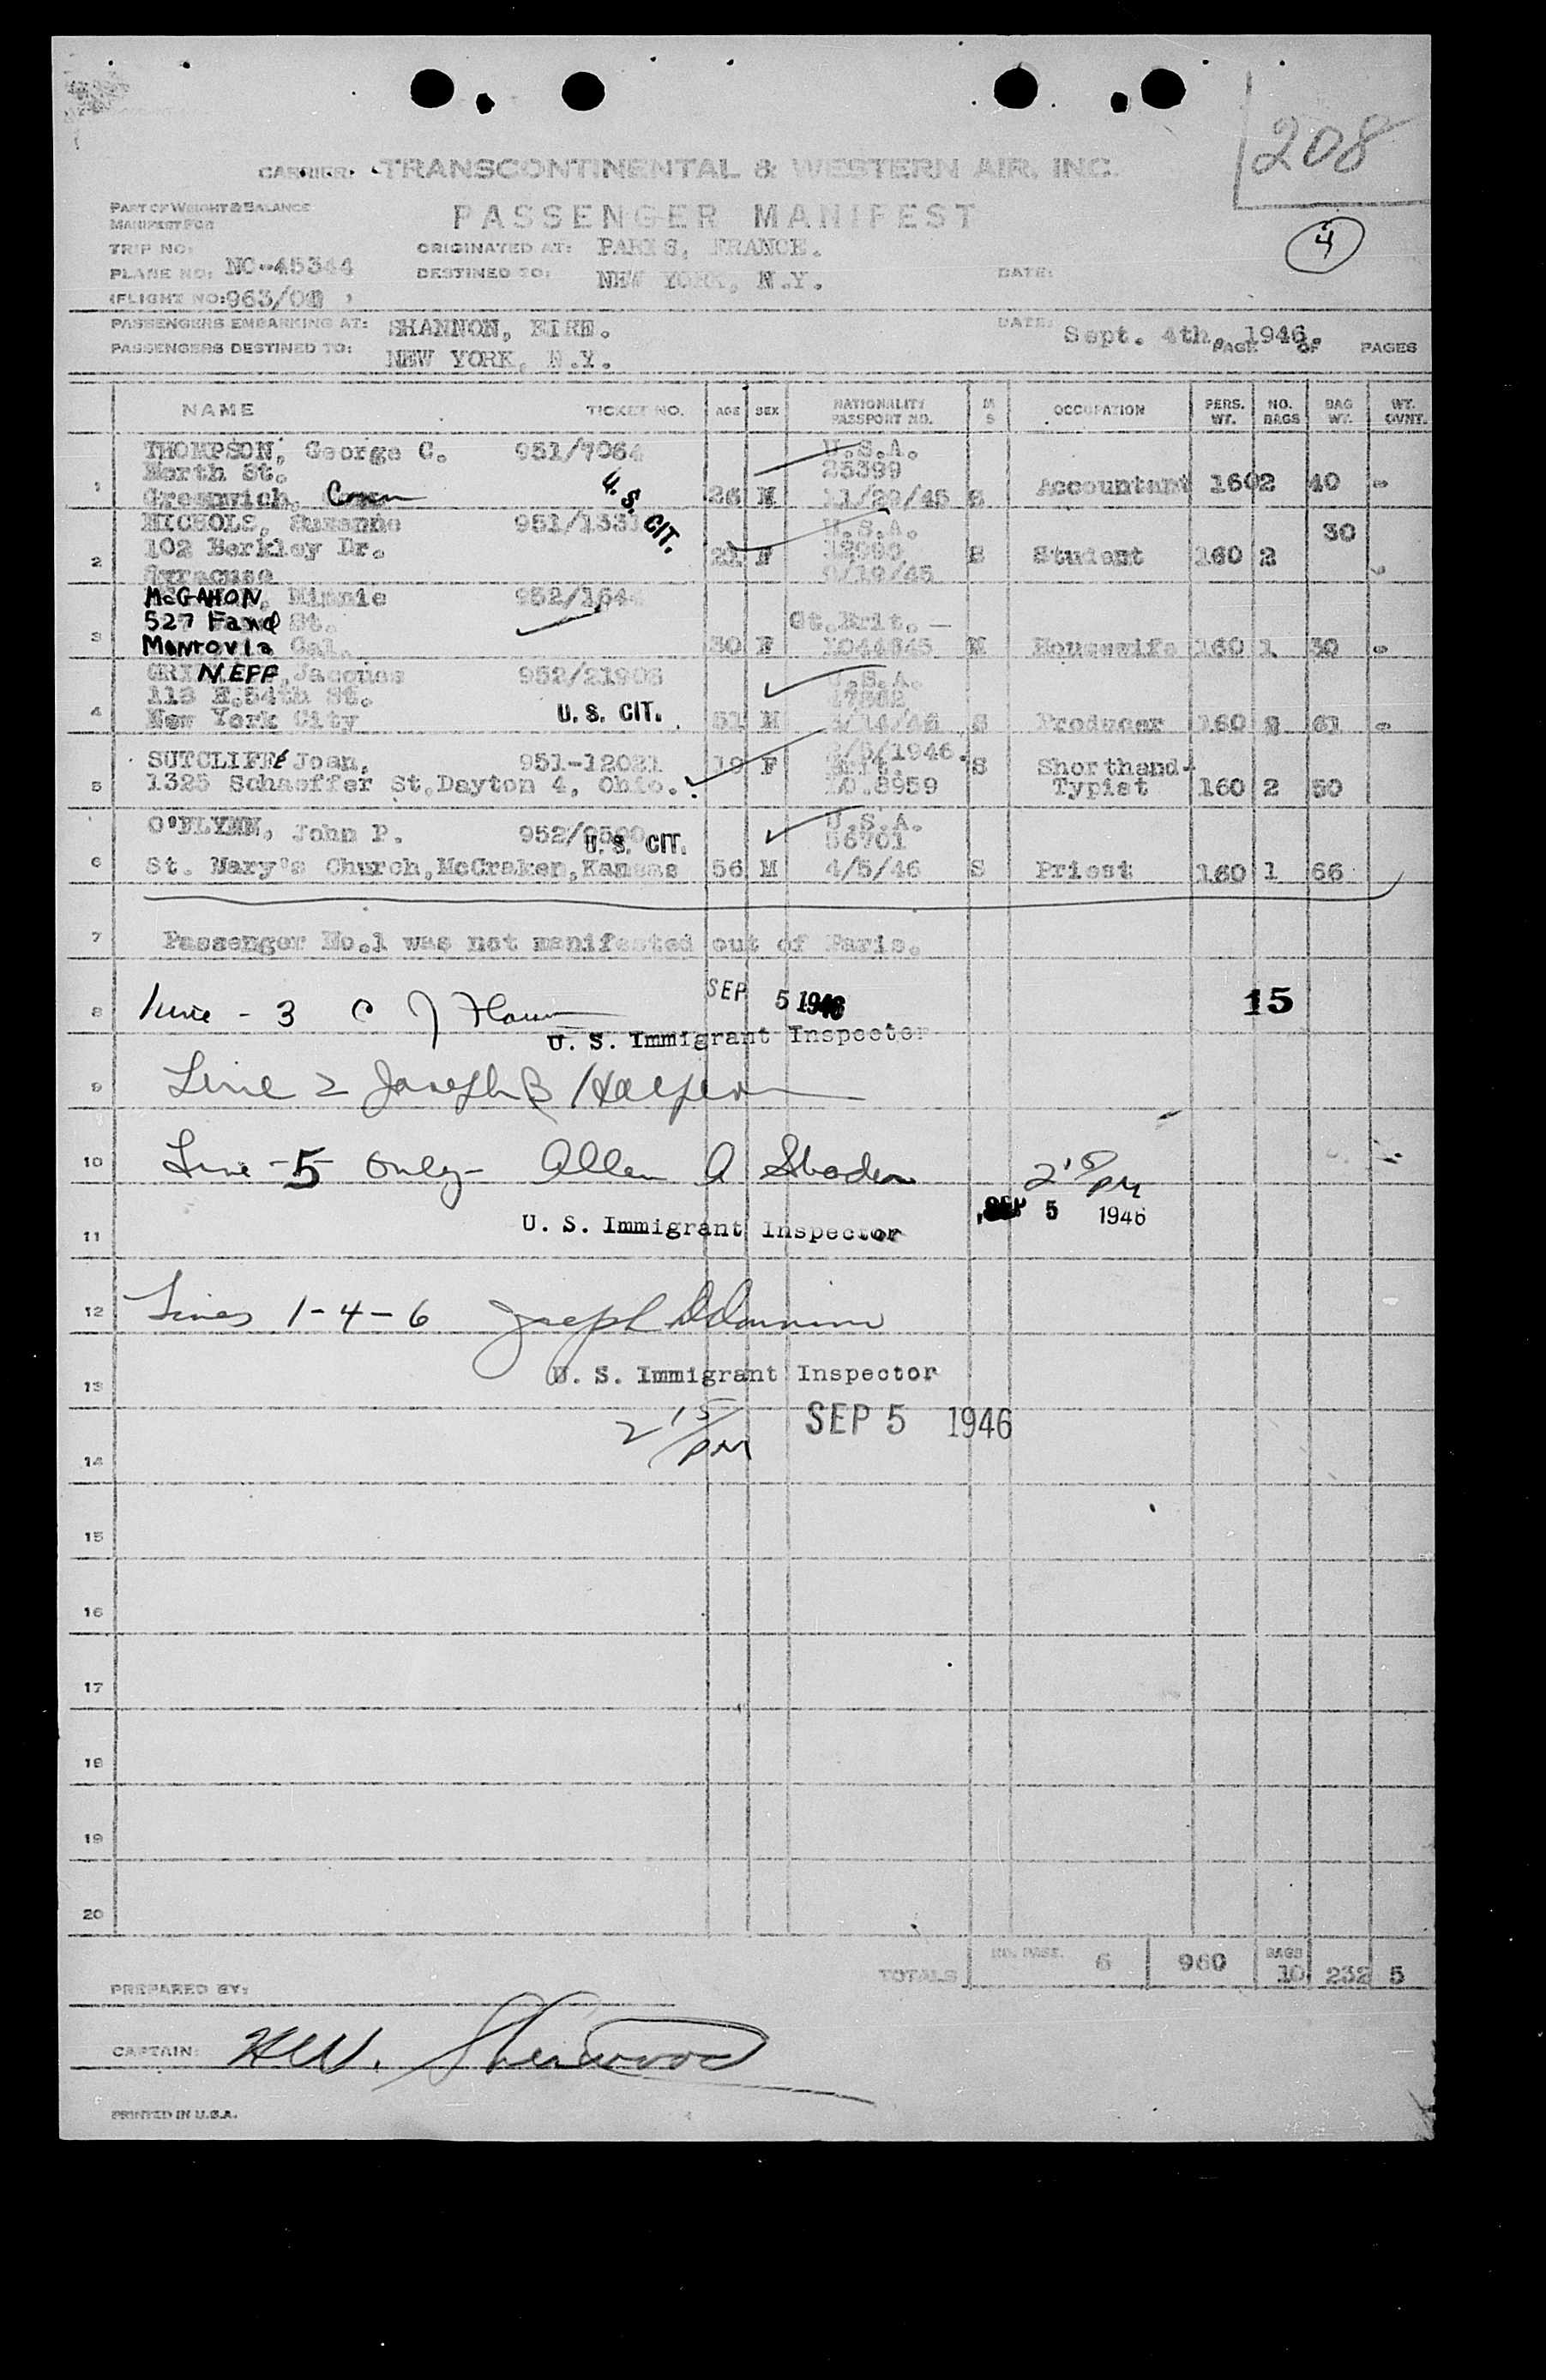 208
CARRIER: TRANSCONTINENTAL & WESTERN AIR, INC.
PART OF WEIGHT & BALANCE
MANIFEST FOR
PASSENGER MANIFEST
4
TRIP NO:
ORIGINATED AT: PARIS, FRANCE.
PLANE NO: NC-45344
DESTINED TO: NEW YORK, N.Y.
DATE:
(FLIGHT NO: 963/0 )
PASSENGERS EMBARKING AT: SHANNON, EIRE.
DATE: Sept. 4th, 1946.
PASSENGERS DESTINED TO: NEW YORK, N.Y.
PAGE OF PAGES
NAME TICKET NO. AGE SEX NATIONALITY PASSPORT NO. M S OCCUPATION PERS. WT. NO. BAGS BAG WT. WT. OVNT.
THOMPSON, George C. 951/7064 U.S.A.
North St. 25399
1 Greenwich, Conn 26 M 11/29/45 S Accountant 160 2 40 -
U.S. CIT.
NICHOLS, Suzanne 951/1331 U.S.A. 30
102 Berkley Dr.
2 Syracuse 21 F /19/45 S Student 160 2
McGAHON, Minnie 952/1644
527 Fand St. Gt.Brit. -
3 Monrovia Cal. 30 F 1044845 M Housewife 160 1 30 -
GRINNEFF, Jacques 952/21906 U.S.A.
113 E.54th St.
4 New York City U.S. CIT. 51 M /14/46 S Producer 160 2 61 -
/5/1946.
SUTCLIFFE Joan, 951-12021 19 F Brit. S Shorthand-
5 1325 Schaeffer St.Dayton 4, Ohio. 10.8959 Typist 160 2 50
O'FLYNN, John P. 952/9500 U.S. CIT. U.S.A.
56701
6 St. Mary's Church,McCraken,Kansas 56 M 4/5/46 S Priest 160 1 66
7 Passenger No.1 was not manifested out of Paris.
8 Line - 3 C J SEP 5 1946 15
U. S. Immigrant Inspector
9 Line 2 Joseph B Halpern
10 Line -5 only- Allen A 2 15 PM
11 U. S. Immigrant Inspector SEP 5 1946
12 Lines 1-4-6 Joseph
13 U. S. Immigrant Inspector
2 15 PM SEP 5 1946
14
15
16
17
18
19
20
TOTALS NO. PASS. 6 960 BAGS 10 232 5
PREPARED BY:
CAPTAIN: H.W. Sherwood
PRINTED IN U.S.A.